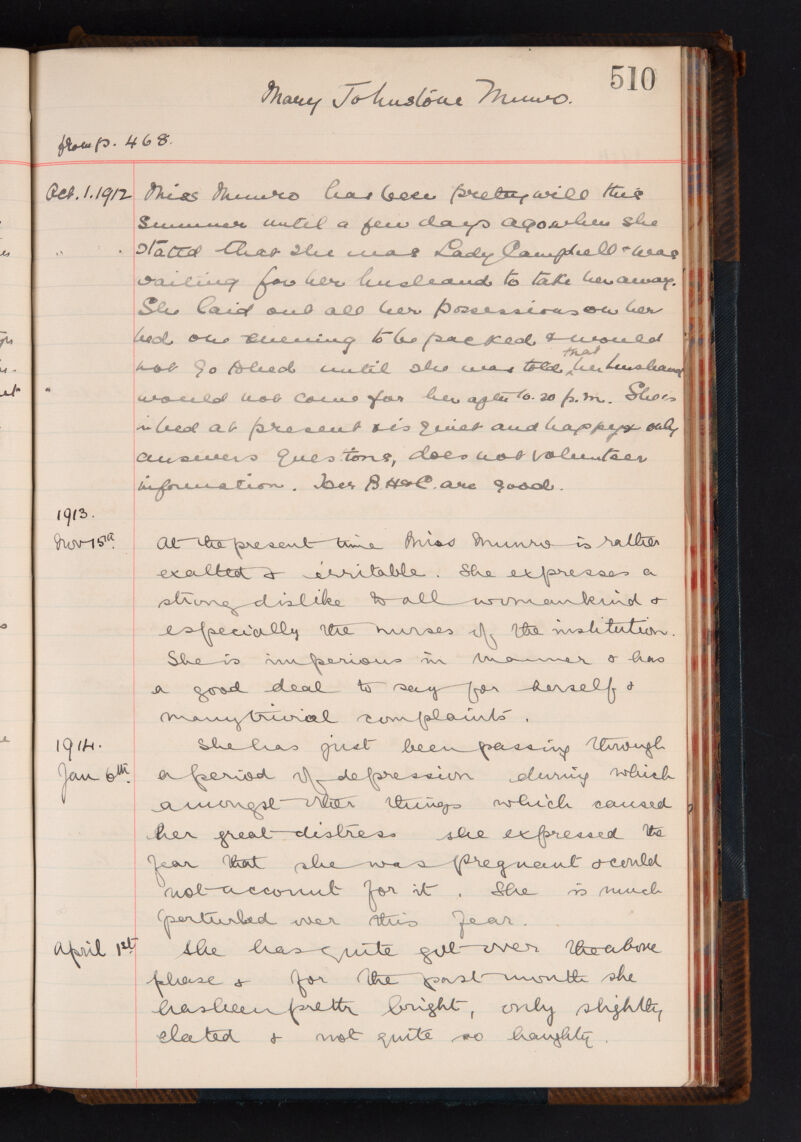 510
Mary Johnstone Munro.
from p. 468.
Oct. 1. 1912 Miss Munro has been pretty well this
Summer until a few days ago when she
" . stated that she was Lady Campbell & was
waiting for her husband to take her away.
She laid out all her possessions on her
bed one evening to be packed & would
not go to bed until she was told that her husband
would not come for her after 10.20 p.m. She is
in bed at present & is quiet and happy & only
answers questons, does not volunteer
information. Her B H & C. are good.
1913.
Nov 15th At the present time Miss Munro is rather
exalted & irritable. She expresses a
strong dislike to all womankind &
especially the nurses of the institution.
She is imperious in manner & has
a good deal to say for herself &
many trivial complaints.
1914. She has just been passing through
Jan 6th. a period of depression during which
amongst other things which caused
her great distress she expressed the
fear that she was pregnant & could
not account for it. She is much
perturbed over this fear.
April 1st She has quite got over the above
phase & for the past month she
has been pretty bright, only slightly
elated & not quite so haughty.